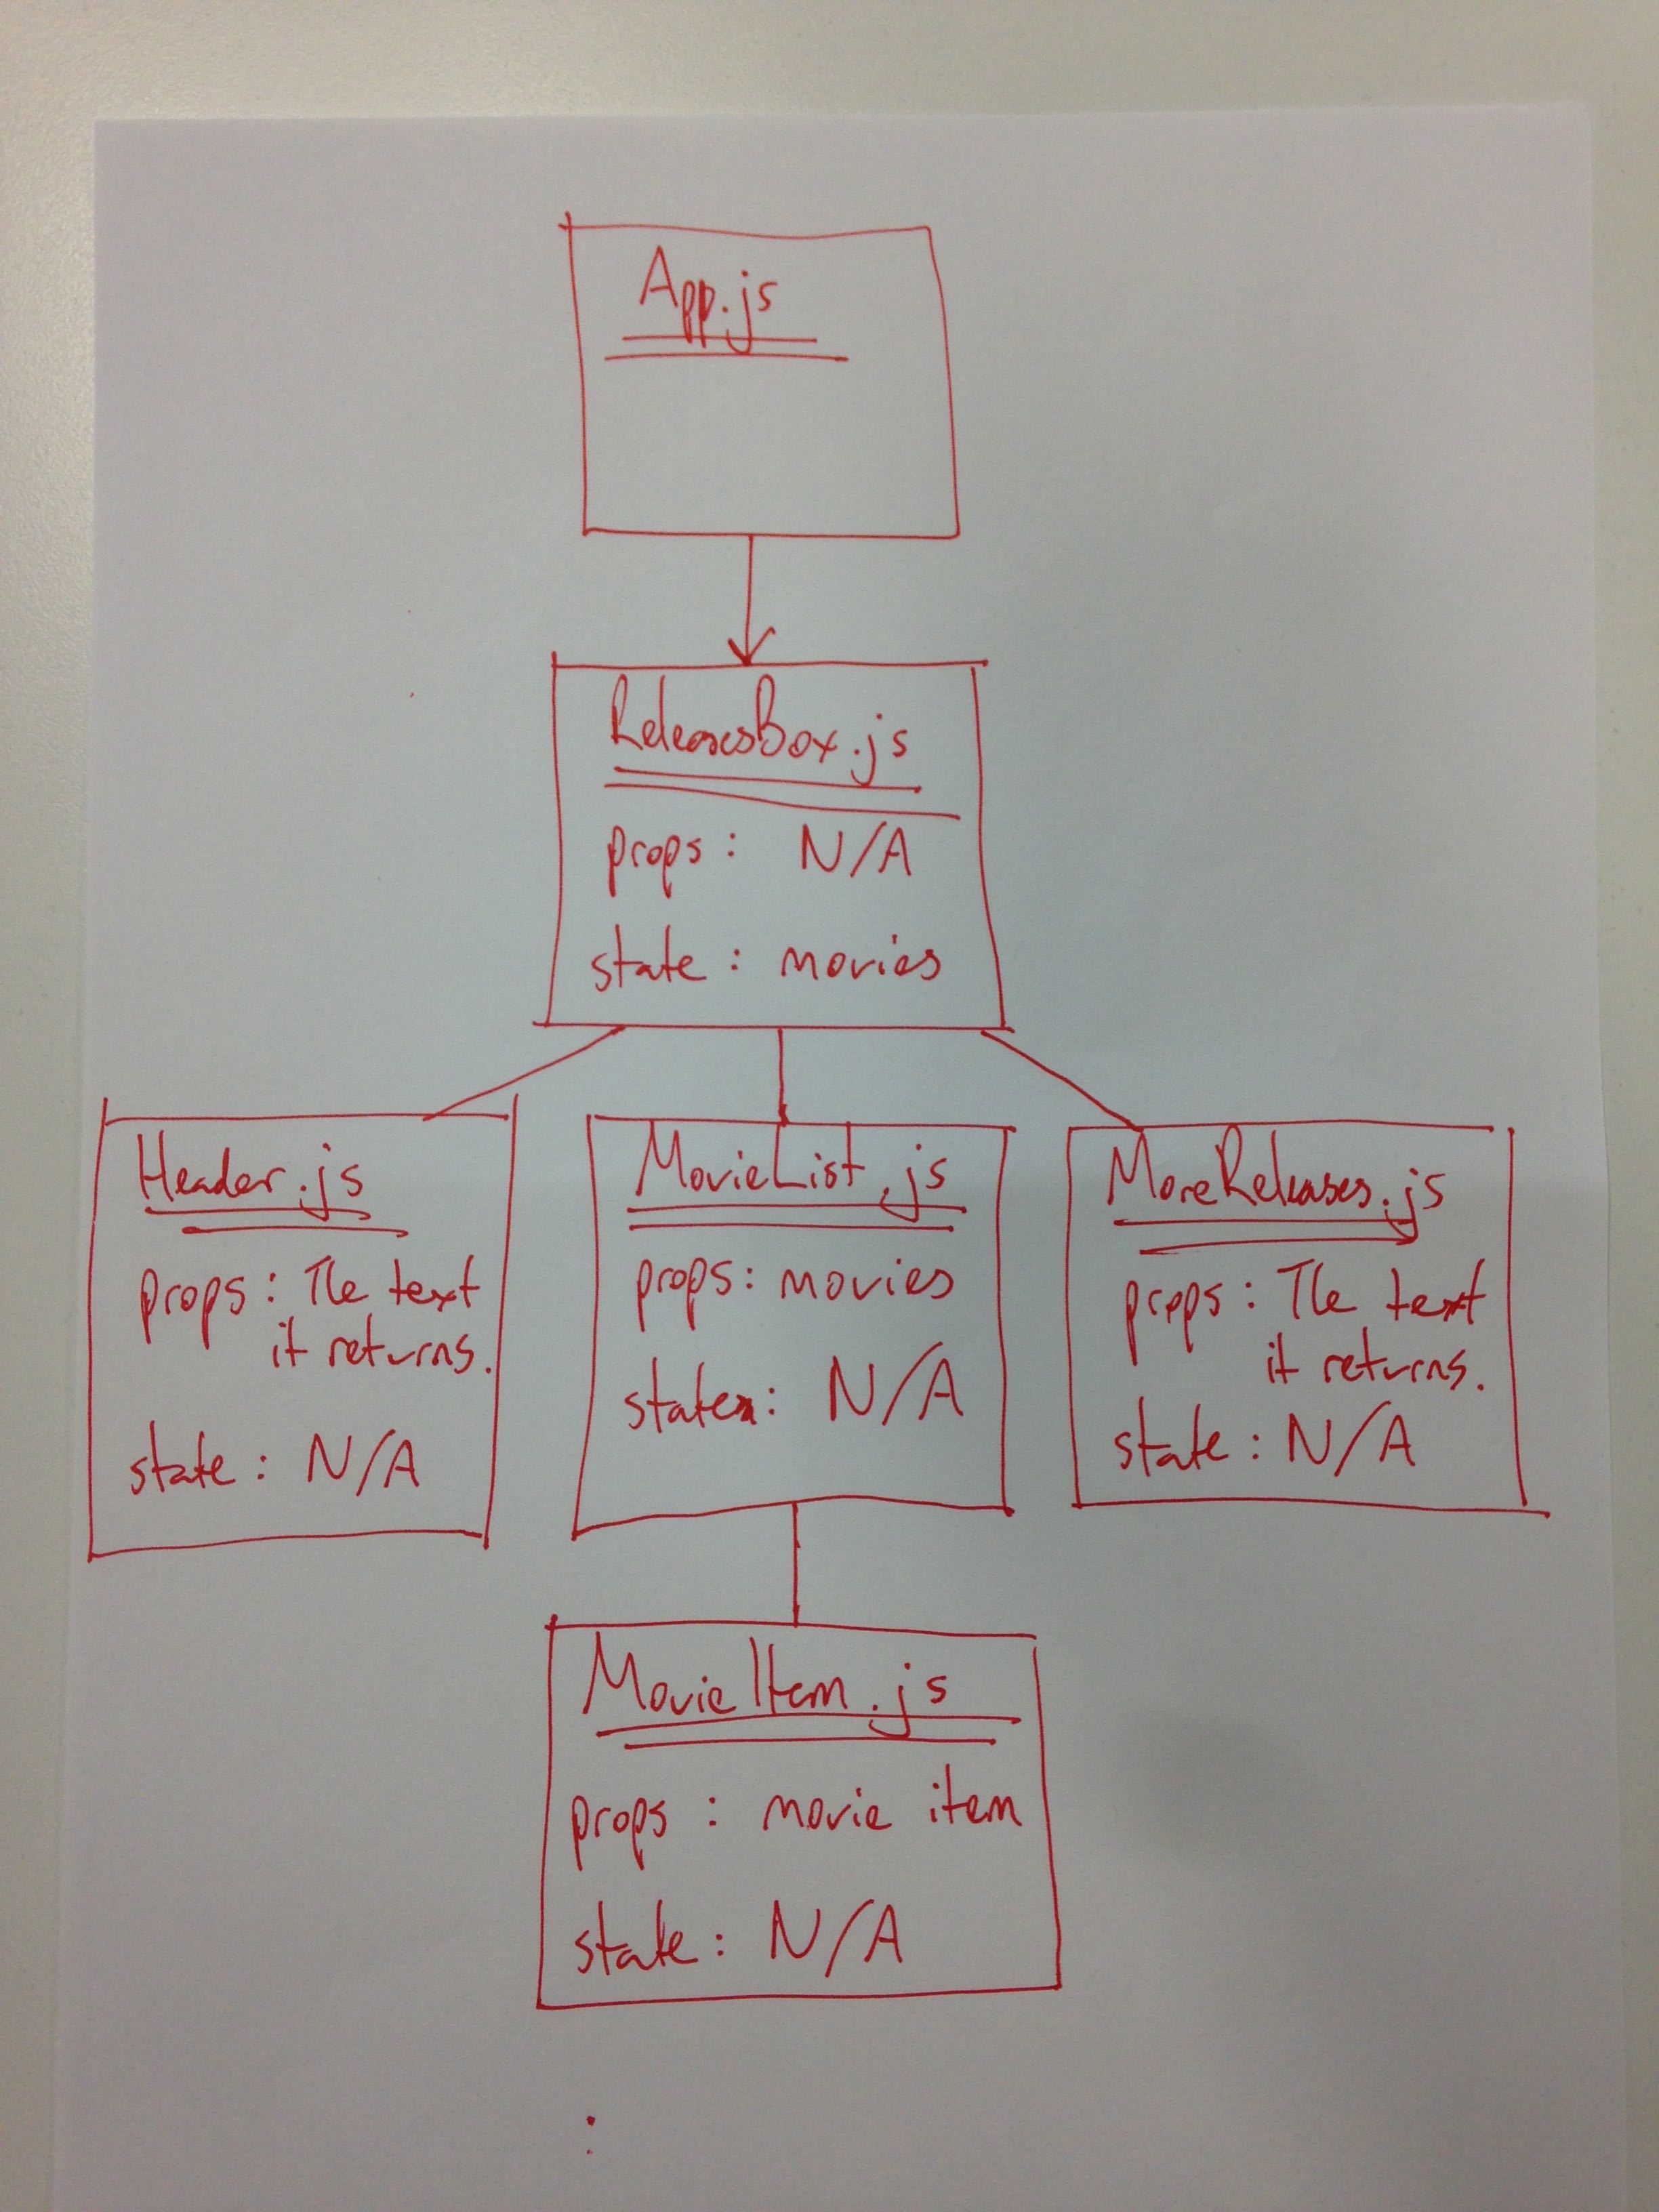 App.js
ReleasesBox.js
props: N/A
state: movies
Header.js
props: The text
it returns.
state: N/A
MovieList.js
props: movies
state: N/A
MoreReleases.js
props: The text
it returns.
state: N/A
MovieItem.js
props: movie item
state: N/A